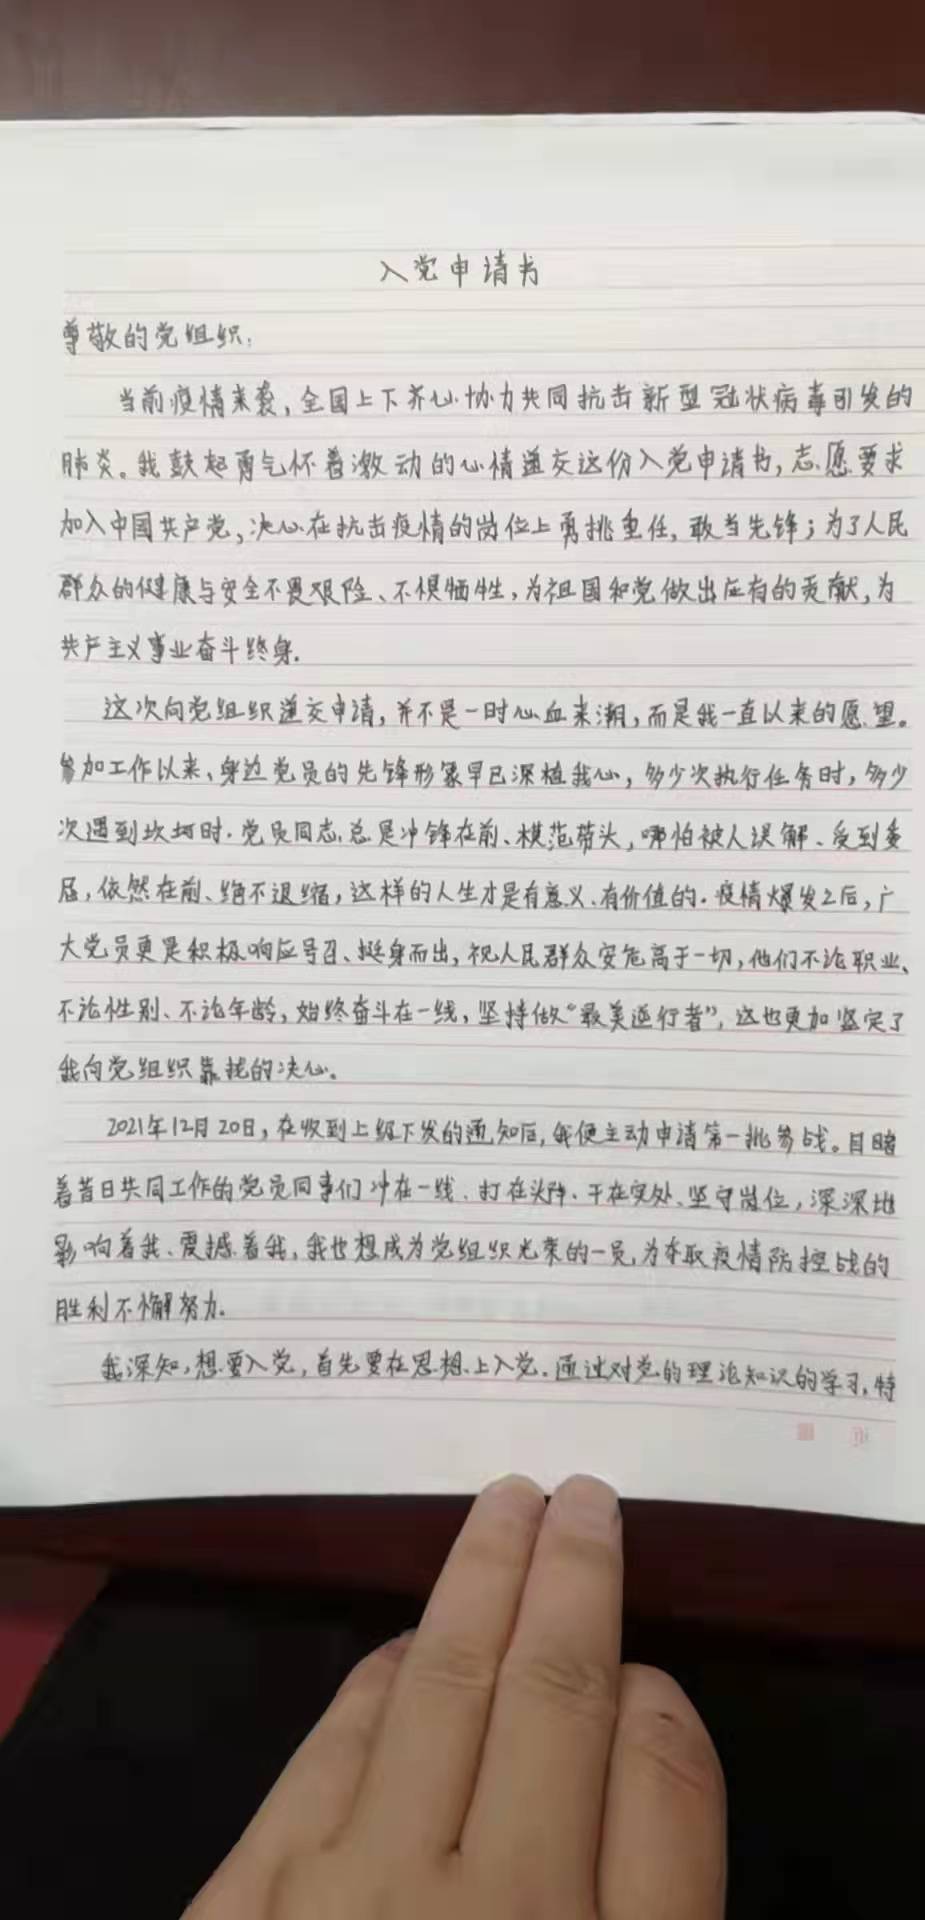 入党申请书
尊敬的党组织:
当前疫情来袭,全国上下齐心协力共同抗击新型冠状病毒引发的
肺炎。我鼓起勇气怀着激动的心情递交这份入党申请书,志愿要求
加入中国共产党,决心在抗击疫情的岗位上勇挑重任,敢当先锋;为了人民
群众的健康与安全不畏艰险、不惧牺牲,为祖国和党做出应有的贡献,为
共产主义事业奋斗终身.
这次向党组织递交申请,并不是一时心血来潮,而是我一直以来的愿望。
参加工作以来、身边党员的先锋形象早已深植我心,多少次执行任务时,多少
次遇到坎坷时.党员同志总是冲锋在前、模范带头,哪怕被人误解、受到委
屈,依然在前、绝不退缩,这样的人生才是有意义、有价值的.疫情爆发之后,广
大党员更是积极响应号召、挺身而出,视人民群众安危高于一切,他们不论职业、
不论性别、不论年龄,始终奋斗在一线,坚持做“最美逆行者”,这也更加坚定了
我向党组织靠拢的决心。
2021年12月20日,在收到上级下发的通知后,我便主动申请第一批参战。目睹
着昔日共同工作的党员同事们冲在一线、打在头阵、干在实处、坚守岗位,深深地
影响着我、震撼着我,我也想成为党组织光荣的一员,为夺取疫情防控战的
胜利不懈努力.
我深知,想要入党,首先要在思想上入党.通过对党的理论知识的学习,特
页